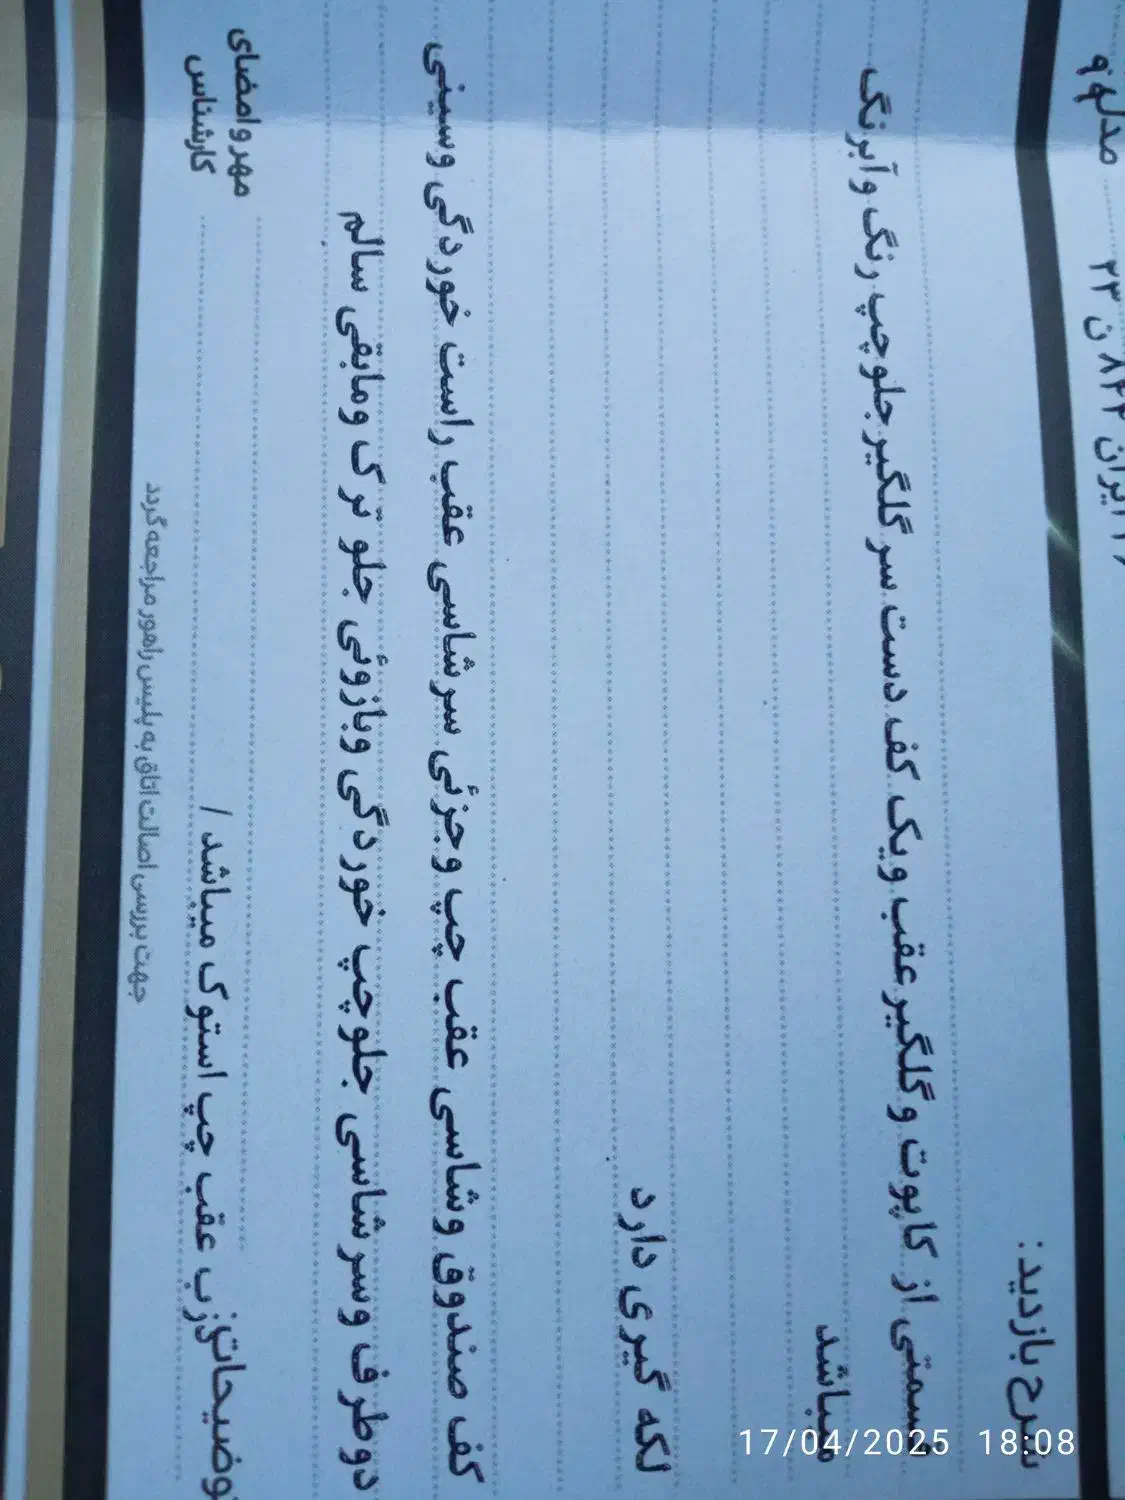 ایران ۸۴۴ ن ۲۳ مدل
شرح بازدید:
قسمتی از کاپوت و گلگیر عقب و یک کف دست سر گلگیر جلو چپ رنگ و آبرنگ
میباشد
لکه گیری دارد
کف صندوق و شاسی عقب چپ و جزئی سر شاسی عقب راست خوردگی و سینی
دو طرف و سر شاسی جلو چپ خوردگی و بازوئی جلو ترک و مابقی سالم
توضیحات: درب عقب چپ استوک میباشد /
مهر و امضای
کارشناس
جهت بررسی اصالت اتاق به پلیس راهور مراجعه گردد
17/04/2025 18:08